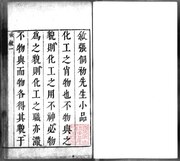 敘張侗初先生小品
化工之肖物也不物與之
貌則化工之用不神必物
為之貌則化工之職亦瀆
不物與而物各得其貌于